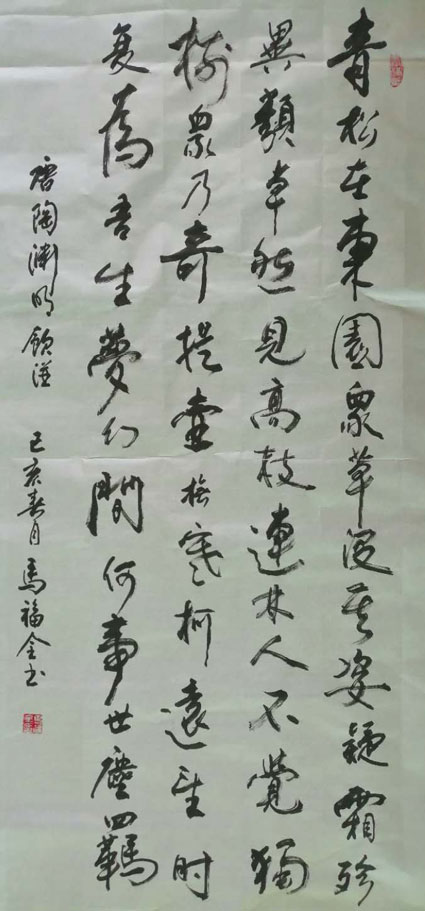 青松在東園眾草沒其姿凝霜殄
異類卓然見高枝連林人不覺獨
樹眾乃奇提壺撫寒柯遠望時
复為吾生夢幻間何事世塵四羈
唐陶渊明飲酒 己亥春月馬福全书